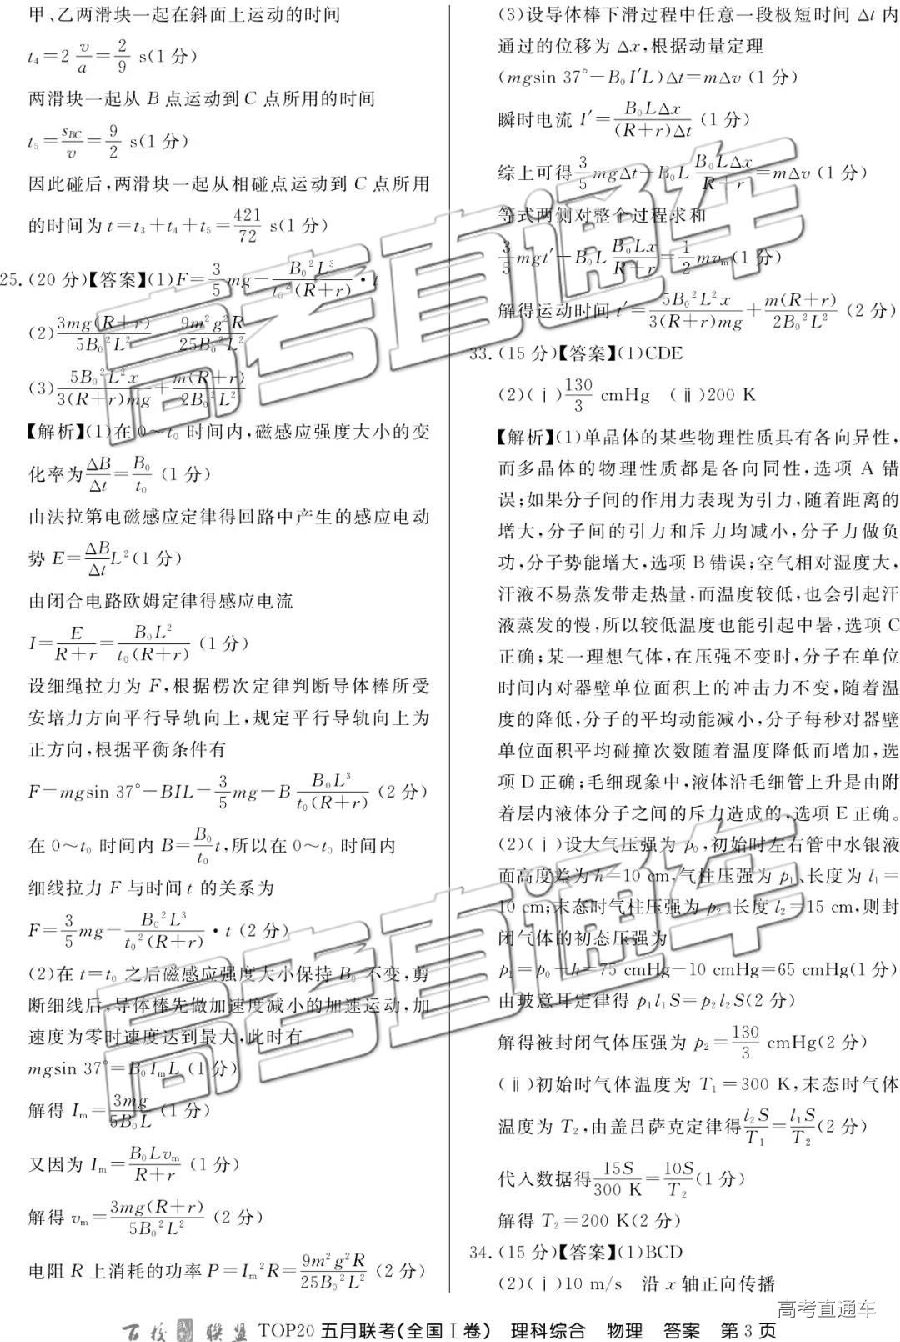 甲、乙两滑块一起在斜面上运动的时间
t₄=2 v/a=2/9 s(1分)
两滑块一起从B点运动到C点所用的时间
t₅=s_BC/v=9/2 s(1分)
因此碰后,两滑块一起从相碰点运动到C点所用
的时间为t=t₃+t₄+t₅=421/72 s(1分)
25.(20分)【答案】(1)F=3/5 mg-B₀²L³/t₀²(R+r)·t
(2)3mg(R+r)/5B₀²L² 9m²g²R/25B₀²L²
(3)5B₀²L²x/3(R+r)mg+m(R+r)/2B₀²L²
【解析】(1)在0~t₀时间内,磁感应强度大小的变
化率为ΔB/Δt=B₀/t₀ (1分)
由法拉第电磁感应定律得回路中产生的感应电动
势E=ΔB/Δt L²(1分)
由闭合电路欧姆定律得感应电流
I=E/R+r=B₀L²/t₀(R+r) (1分)
设细绳拉力为F,根据楞次定律判断导体棒所受
安培力方向平行导轨向上,规定平行导轨向上为
正方向,根据平衡条件有
F=mgsin 37°-BIL=3/5 mg-B B₀L³/t₀(R+r) (2分)
在0~t₀时间内B=B₀/t₀ t,所以在0~t₀时间内
细线拉力F与时间t的关系为
F=3/5 mg-B₀²L³/t₀²(R+r)·t (2分)
(2)在t=t₀之后磁感应强度大小保持B₀不变,剪
断细线后,导体棒先做加速度减小的加速运动,加
速度为零时速度达到最大,此时有
mgsin 37°=B₀IₘL (1分)
解得Iₘ=3mg/5B₀L (1分)
又因为Iₘ=B₀Lvₘ/R+r (1分)
解得vₘ=3mg(R+r)/5B₀²L² (2分)
电阻R上消耗的功率P=Iₘ²R=9m²g²R/25B₀²L² (2分)
(3)设导体棒下滑过程中任意一段极短时间Δt内
通过的位移为Δx,根据动量定理
(mgsin 37°-B₀I′L)Δt=mΔv (1分)
瞬时电流I′=B₀LΔx/(R+r)Δt (1分)
综上可得3/5 mgΔt-B₀L B₀LΔx/R+r=mΔv (1分)
等式两侧对整个过程求和
3/5 mgt′-B₀L B₀Lx/R+r=1/2 mvₘ(1分)
解得运动时间t′=5B₀²L²x/3(R+r)mg+m(R+r)/2B₀²L² (2分)
33.(15分)【答案】(1)CDE
(2)(ⅰ)130/3 cmHg (ⅱ)200 K
【解析】(1)单晶体的某些物理性质具有各向异性,
而多晶体的物理性质都是各向同性,选项A错
误;如果分子间的作用力表现为引力,随着距离的
增大,分子间的引力和斥力均减小,分子力做负
功,分子势能增大,选项B错误;空气相对湿度大,
汗液不易蒸发带走热量,而温度较低,也会引起汗
液蒸发的慢,所以较低温度也能引起中暑,选项C
正确;某一理想气体,在压强不变时,分子在单位
时间内对器壁单位面积上的冲击力不变,随着温
度的降低,分子的平均动能减小,分子每秒对器壁
单位面积平均碰撞次数随着温度降低而增加,选
项D正确;毛细现象中,液体沿毛细管上升是由附
着层内液体分子之间的斥力造成的,选项E正确。
(2)(ⅰ)设大气压强为p₀,初始时左右管中水银液
面高度差为h=10 cm,气柱压强为p₁、长度为l₁=
10 cm;末态时气柱压强为p₂、长度l₂=15 cm,则封
闭气体的初态压强为
p₁=p₀-h=75 cmHg-10 cmHg=65 cmHg(1分)
由玻意耳定律得p₁l₁S=p₂l₂S(2分)
解得被封闭气体压强为p₂=130/3 cmHg(2分)
(ⅱ)初始时气体温度为T₁=300 K,末态时气体
温度为T₂,由盖吕萨克定律得l₂S/T₁=l₁S/T₂(2分)
代入数据得15S/300 K=10S/T₂(1分)
解得T₂=200 K(2分)
34.(15分)【答案】(1)BCD
(2)(ⅰ)10 m/s 沿x轴正向传播
高考直通车
高考直通车
高考直通车
百校联盟 TOP20五月联考(全国Ⅰ卷) 理科综合 物理 答案 第3页